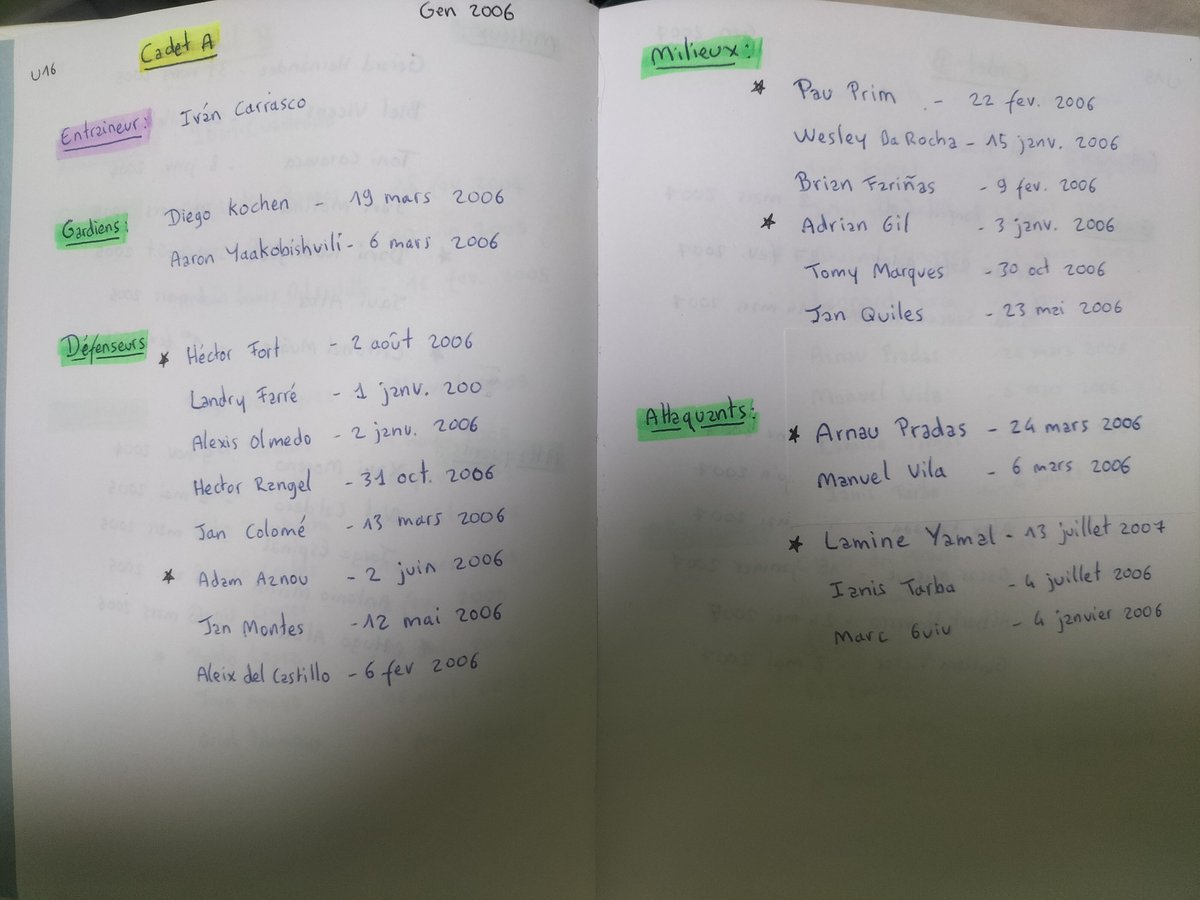 Gen 2006
Cadet A
U16
Entraineur: Iván Carrasco
Gardiens: Diego Kochen - 19 mars 2006
Aaron Yaakobishvili - 6 mars 2006
Défenseurs ★ Héctor Fort - 2 août 2006
Landry Farré - 1 janv. 200
Alexis Olmedo - 2 janv. 2006
Hector Rangel - 31 oct. 2006
Jan Colomé - 13 mars 2006
★ Adam Aznou - 2 juin 2006
Jan Montes - 12 mai 2006
Aleix del Castillo - 6 fev 2006
Milieux:
★ Pau Prim - 22 fev. 2006
Wesley Da Rocha - 15 janv. 2006
Brian Fariñas - 9 fev. 2006
★ Adrian Gil - 3 janv. 2006
Tomy Marques - 30 oct 2006
Jan Quiles - 23 mai 2006
Attaquants:
★ Arnau Pradas - 24 mars 2006
Manuel Vila - 6 mars 2006
★ Lamine Yamal - 13 juillet 2007
Ianis Tarba - 4 juillet 2006
Marc Guiu - 4 janvier 2006